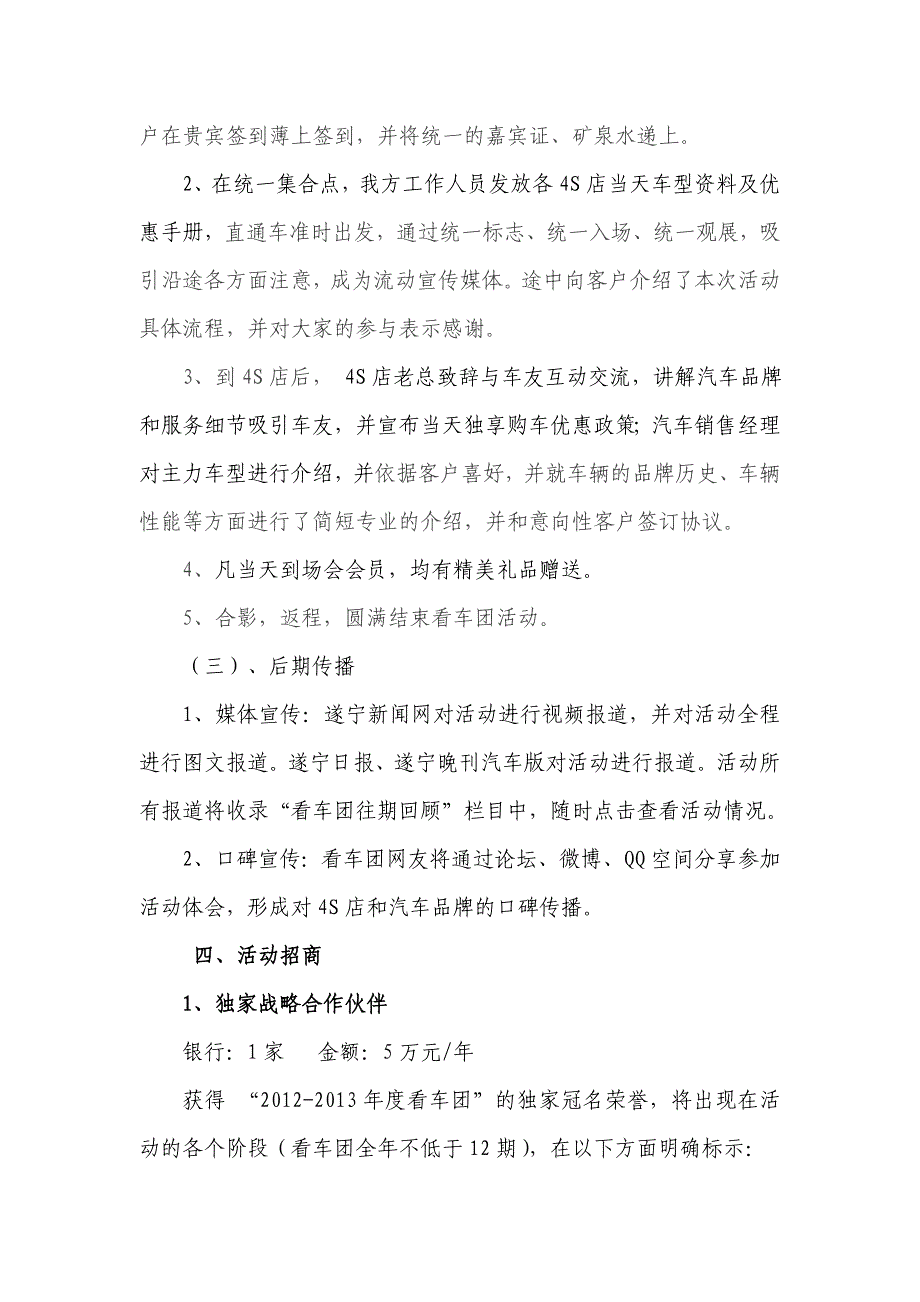 户在贵宾签到薄上签到，并将统一的嘉宾证、矿泉水递上。
2、在统一集合点，我方工作人员发放各4S店当天车型资料及优
惠手册，直通车准时出发，通过统一标志、统一入场、统一观展，吸
引沿途各方面注意，成为流动宣传媒体。途中向客户介绍了本次活动
具体流程，并对大家的参与表示感谢。
3、到4S店后， 4S店老总致辞与车友互动交流，讲解汽车品牌
和服务细节吸引车友，并宣布当天独享购车优惠政策；汽车销售经理
对主力车型进行介绍，并依据客户喜好，并就车辆的品牌历史、车辆
性能等方面进行了简短专业的介绍，并和意向性客户签订协议。
4、凡当天到场会会员，均有精美礼品赠送。
5、合影，返程，圆满结束看车团活动。
（三）、后期传播
1、媒体宣传：遂宁新闻网对活动进行视频报道，并对活动全程
进行图文报道。遂宁日报、遂宁晚刊汽车版对活动进行报道。活动所
有报道将收录“看车团往期回顾”栏目中，随时点击查看活动情况。
2、口碑宣传：看车团网友将通过论坛、微博、QQ空间分享参加
活动体会，形成对4S店和汽车品牌的口碑传播。
四、活动招商
1、独家战略合作伙伴
银行：1家 金额：5万元/年
获得 “2012-2013年度看车团”的独家冠名荣誉，将出现在活
动的各个阶段（看车团全年不低于12期），在以下方面明确标示：